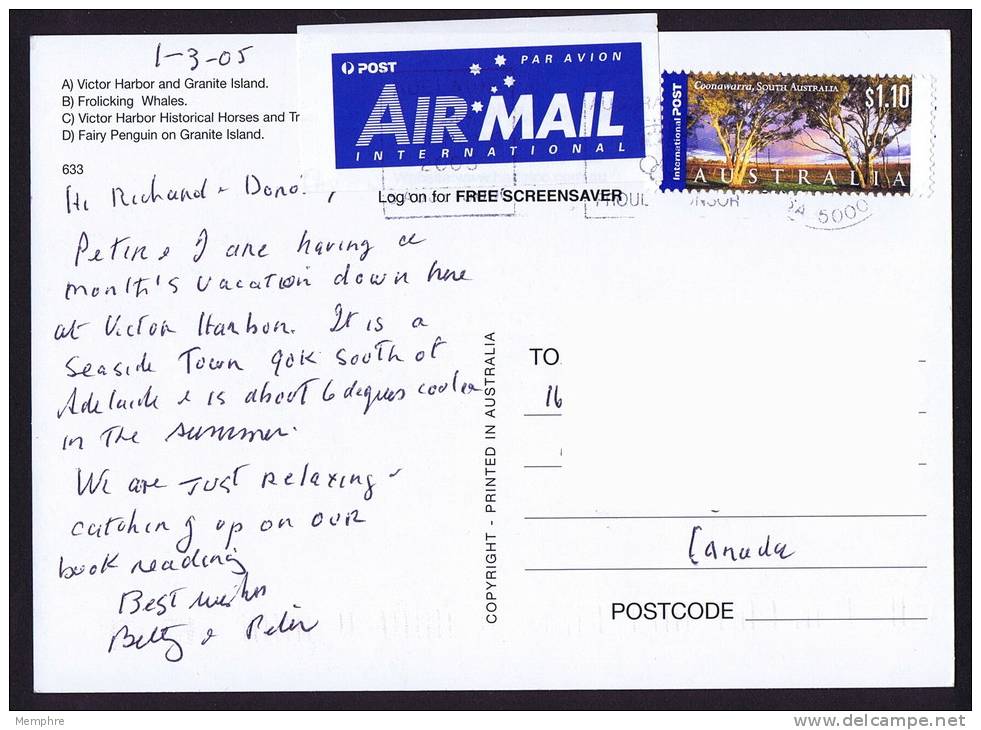 1-3-05
A) Victor Harbor and Granite Island.
B) Frolicking Whales.
C) Victor Harbor Historical Horses and Tr
D) Fairy Penguin on Granite Island.
633
POST
PAR AVION
AIR MAIL
INTERNATIONAL
Log on for FREE SCREENSAVER
International POST
Coonawarra, SOUTH AUSTRALIA
$1.10
AUSTRALIA
SA 5000
Hi Richard &
Peter & I are having a
month's vacation down here
at Victor Harbor. It is a
seaside Town 90K south of
Adelaide & is about 6 degrees cooler
in the summer.
We are just relaxing &
catching up on our
book reading
Best wishes
Betty & Peter
COPYRIGHT - PRINTED IN AUSTRALIA
TO
16
Canada
POSTCODE
Memphre
www.delcampe.net